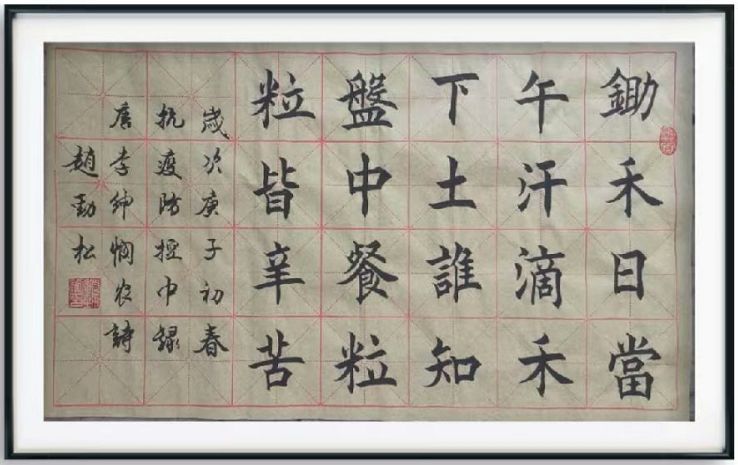 鋤禾日當
午汗滴禾
下土誰知
盤中餐粒
粒皆辛苦
歲次庚子初春
抗疫防控中録
唐李紳憫农詩
趙勁松